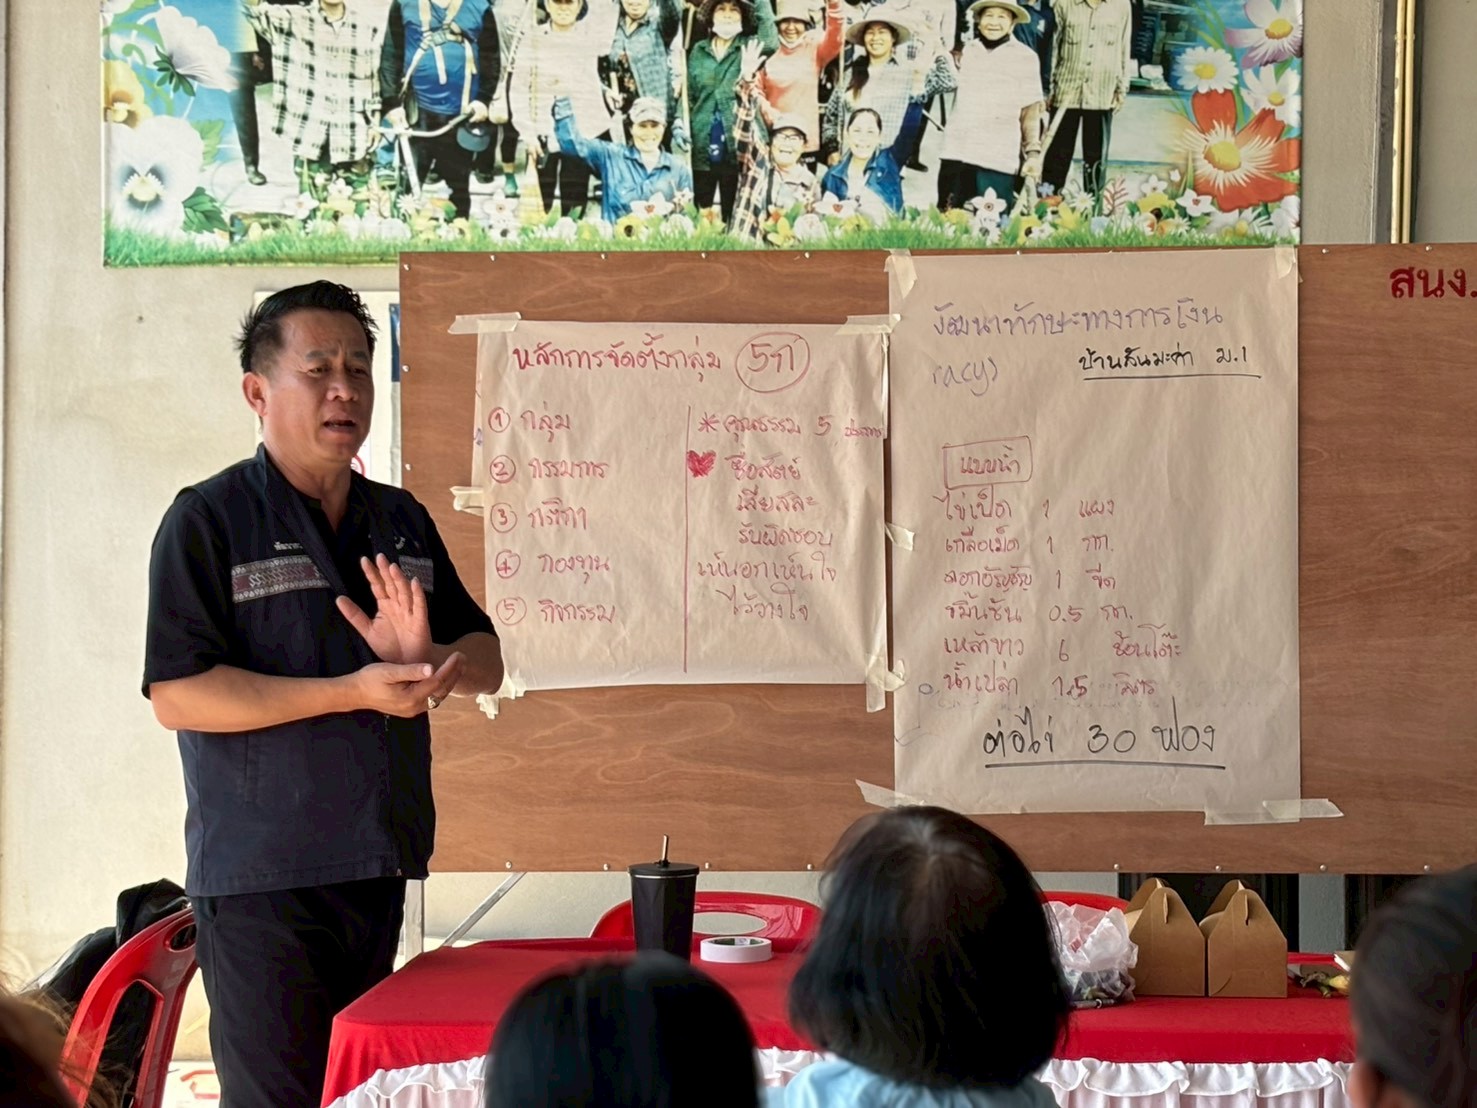 สนง.
หลักการจัดตั้งกลุ่ม 5ก
① กลุ่ม
② กรรมการ
③ กติกา
④ กองทุน
⑤ กิจกรรม
* คุณธรรม 5 ประการ
ซื่อสัตย์
เสียสละ
รับผิดชอบ
เห็นอกเห็นใจ
ไว้วางใจ
พัฒนาทักษะทางการเงิน
racy)
บ้านสันมะค่า ม.1
แบบน้ำ
ไข่เป็ด 1 แผง
เกลือเม็ด 1 กก.
ดอกอัญชัญ 1 ขีด
ขมิ้นชัน 0.5 กก.
เหล้าขาว 6 ช้อนโต๊ะ
น้ำเปล่า 1.5 ลิตร
ต่อไข่ 30 ฟอง